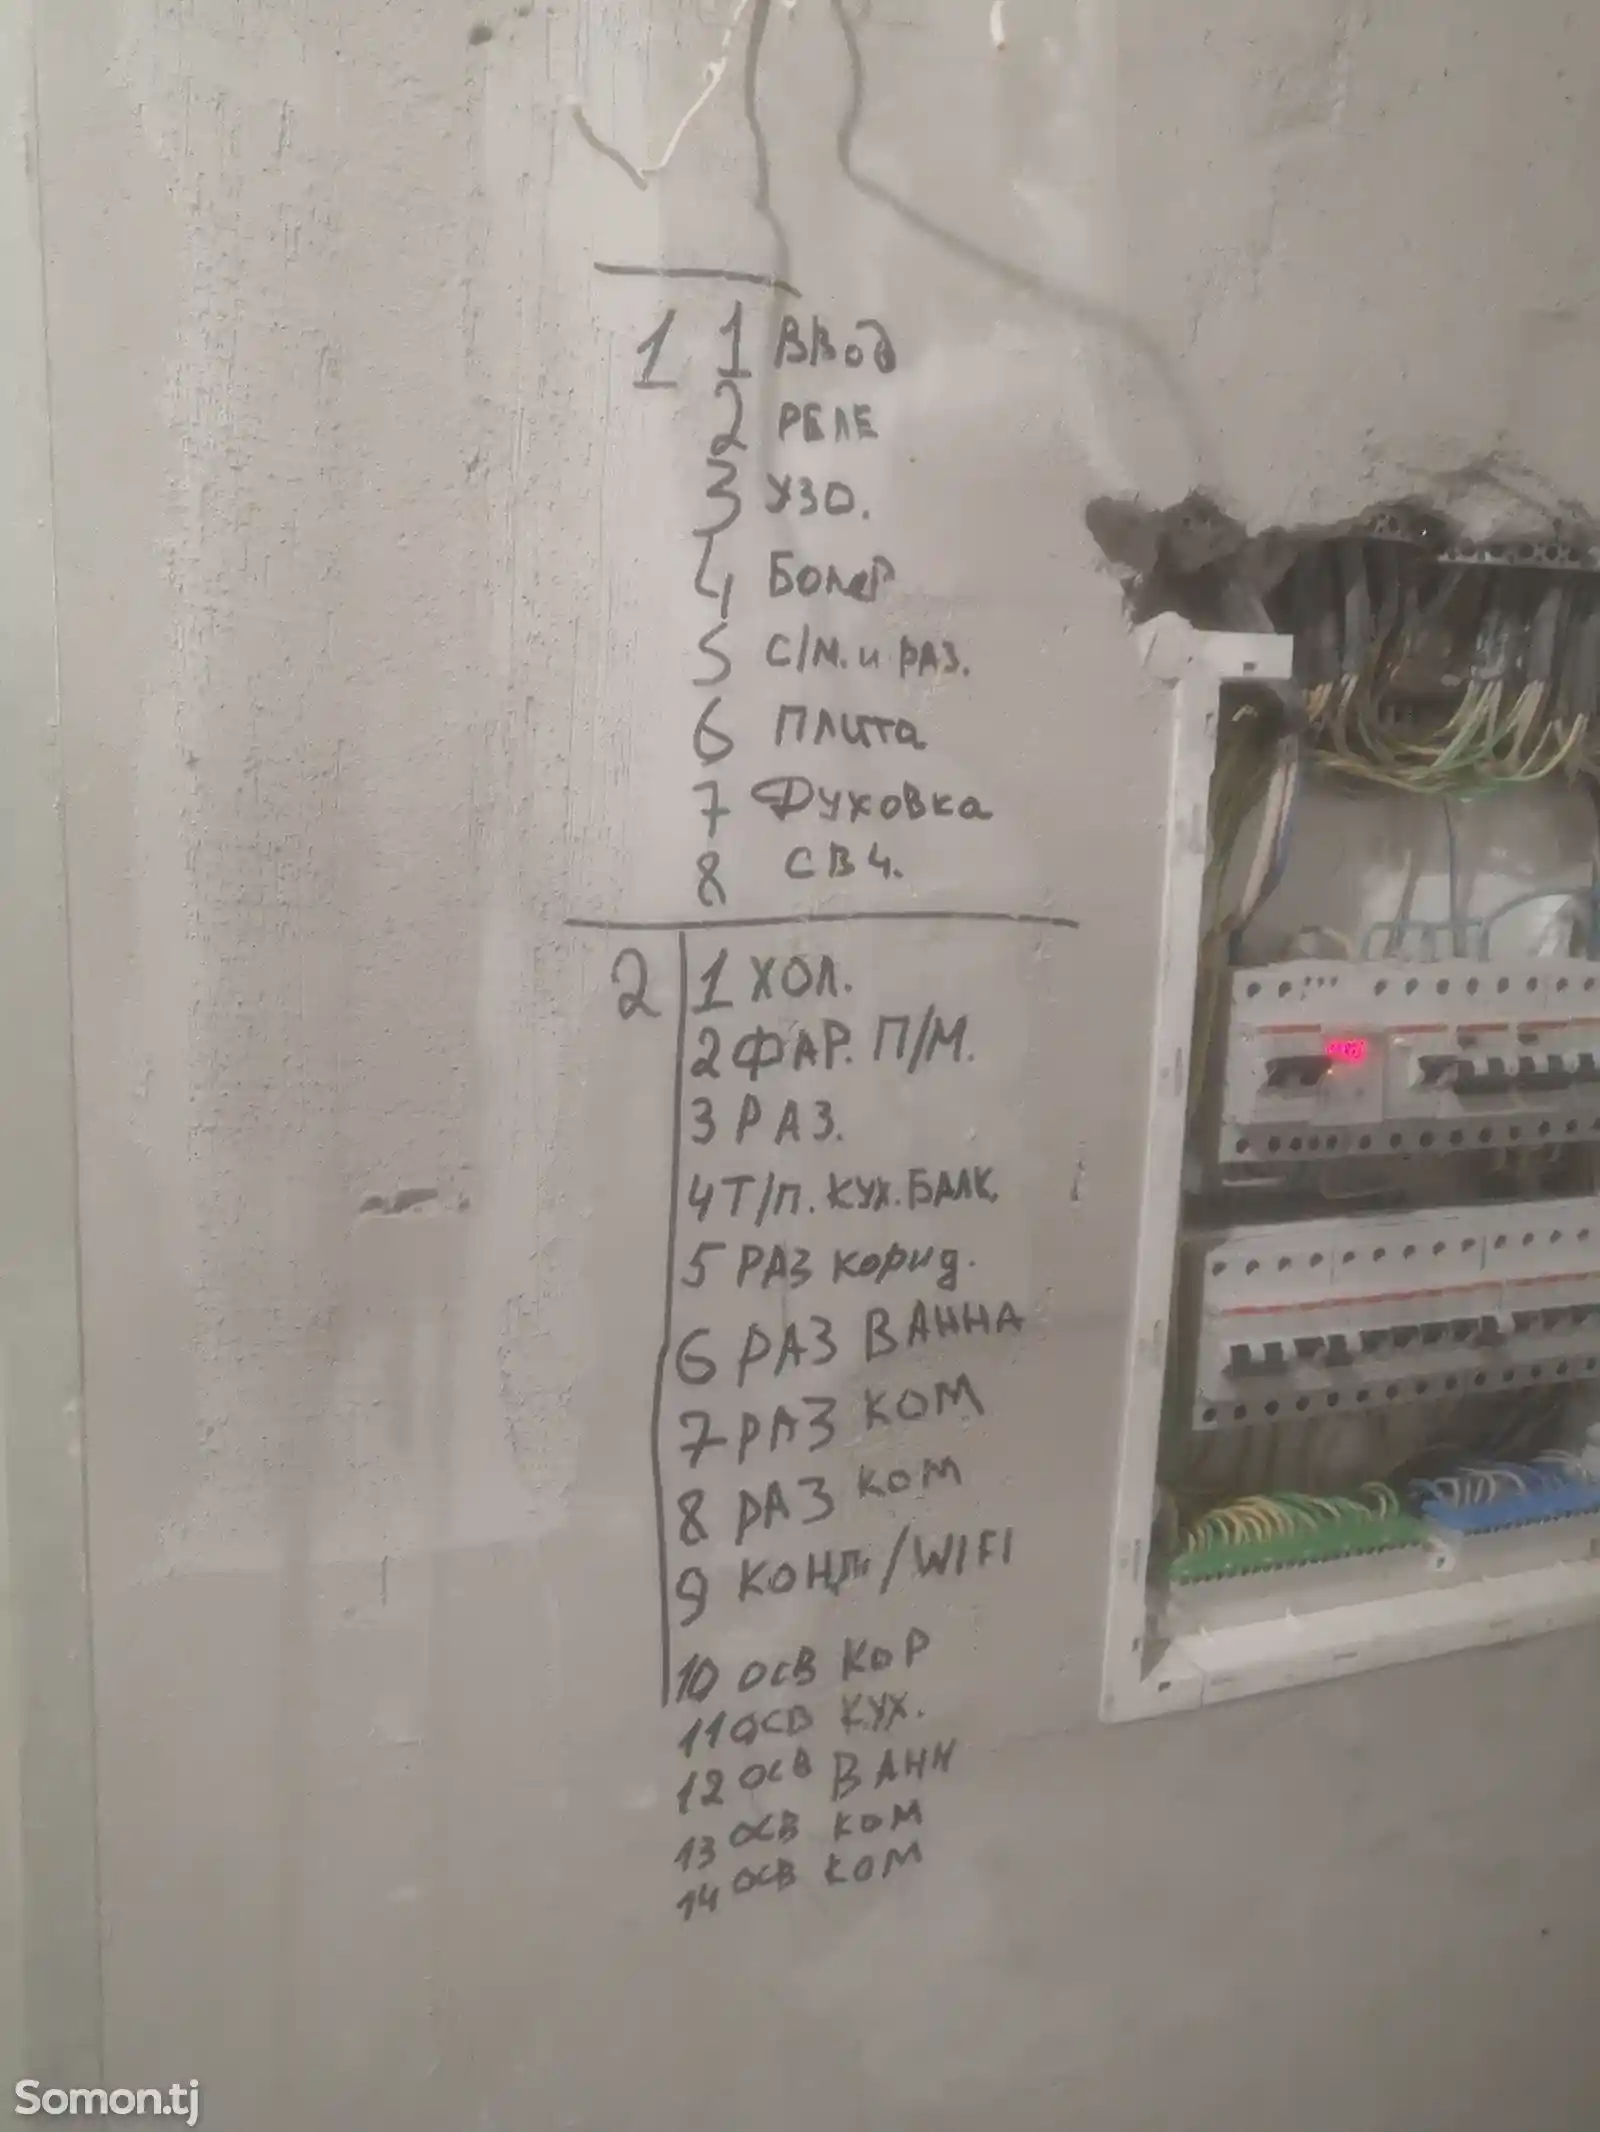 1 1 ВВод
2 РЕЛЕ
3 УЗО.
4 Болер
5 С/М. и РАЗ.
6 Плита
7 Духовка
8 СВЧ.
2 1 ХОЛ.
2 ФАР. П/М.
3 РАЗ.
4 Т/П. КУХ. БАЛК.
5 РАЗ корид.
6 РАЗ ВАННА
7 РАЗ КОМ
8 РАЗ КОМ
9 КОНД. /WIFI
10 осВ КоР
11 осВ КУХ.
12 осВ ВАНН
13 осВ КОМ
14 осВ КОМ
Somon.tj